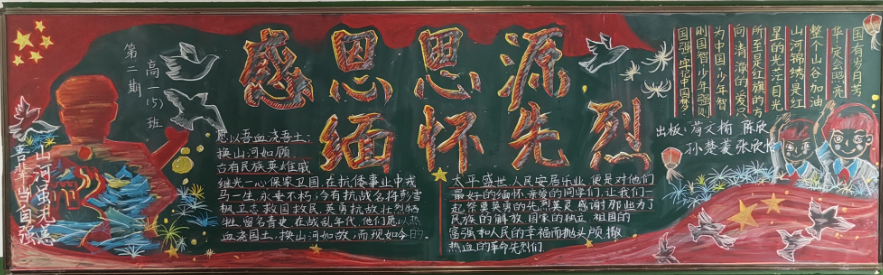 感恩思源
缅怀先烈
第二期
高一(5)班
山河虽无恙
吾辈当自强
愿以吾血浇吾土
换山河如顾
古有民族英雄戚
继光一心保家卫国,在抗倭事业中戎
马一生,永垂不朽,今有抗战名将彭雪
枫立志救国救民,英勇抗敌壮烈牺
牲,留名青史,在战乱年代,他们愿以热
血浇国土,换山河如故,而现如今的
太平盛世,人民安居乐业,便是对他们
最好的缅怀,亲爱的同学们,让我们一
起
英勇的先烈英灵,感谢那些为了
民族的解放,国家的独立,祖国的
富强和人民的幸福而抛头颅,撒
热血的革命先烈们
国有岁月苦
华灯会照亮
整个山谷加油
山河锦绣是红
星的光芒目光
所至是红旗的方
向,清澈的爱只
为中国,少年智
则国智,少年强则
国强
出板:
陈欣